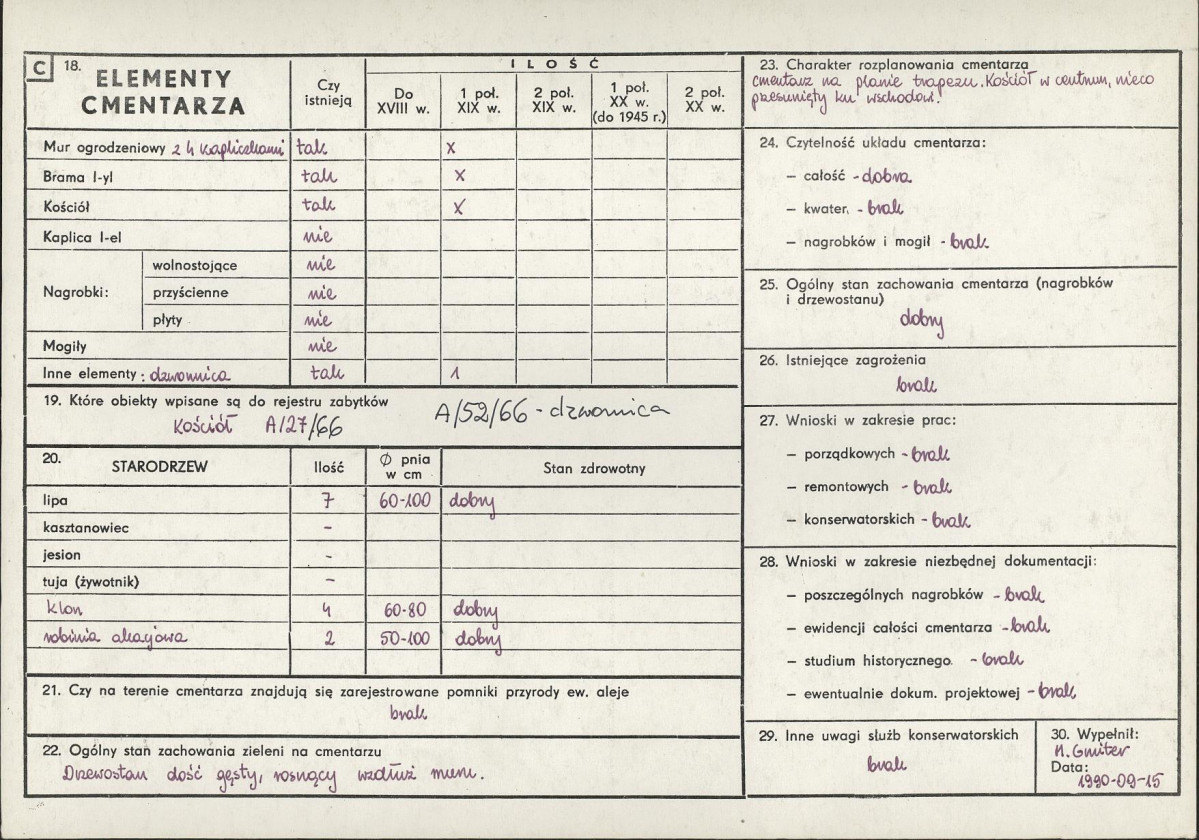 C 18. ELEMENTY CMENTARZA
Czy istnieją
ILOŚĆ
Do XVIII w.
1 poł. XIX w.
2 poł. XIX w.
1 poł. XX w. (do 1945 r.)
2 poł. XX w.
Mur ogrodzeniowy z 4 kapliczkami tak x
Brama I-yl tak x
Kościół tak x
Kaplica I-el nie
Nagrobki: wolnostojące nie
przyścienne nie
płyty nie
Mogiły nie
Inne elementy: dzwonnica tak 1
19. Które obiekty wpisane są do rejestru zabytków
Kościół A/27/66 A/52/66 - dzwonnica
20. STARODRZEW Ilość Ø pnia w cm Stan zdrowotny
lipa 7 60-100 dobry
kasztanowiec -
jesion -
tuja (żywotnik) -
klon 4 60-80 dobry
robinia akacjowa 2 50-100 dobry
21. Czy na terenie cmentarza znajdują się zarejestrowane pomniki przyrody ew. aleje
brak
22. Ogólny stan zachowania zieleni na cmentarzu
Drzewostan dość gęsty, rosnący wzdłuż muru.
23. Charakter rozplanowania cmentarza
cmentarz na planie trapezu. Kościół w centrum, nieco
przesunięty ku wschodowi.
24. Czytelność układu cmentarza:
– całość - dobra
– kwater. - brak
– nagrobków i mogił - brak
25. Ogólny stan zachowania cmentarza (nagrobków
i drzewostanu)
dobry
26. Istniejące zagrożenia
brak
27. Wnioski w zakresie prac:
– porządkowych - brak
– remontowych - brak
– konserwatorskich - brak
28. Wnioski w zakresie niezbędnej dokumentacji:
– poszczególnych nagrobków - brak
– ewidencji całości cmentarza - brak
– studium historycznego. - brak
– ewentualnie dokum. projektowej - brak
29. Inne uwagi służb konserwatorskich
brak
30. Wypełnił:
M. Gmiter
Data:
1990-09-15